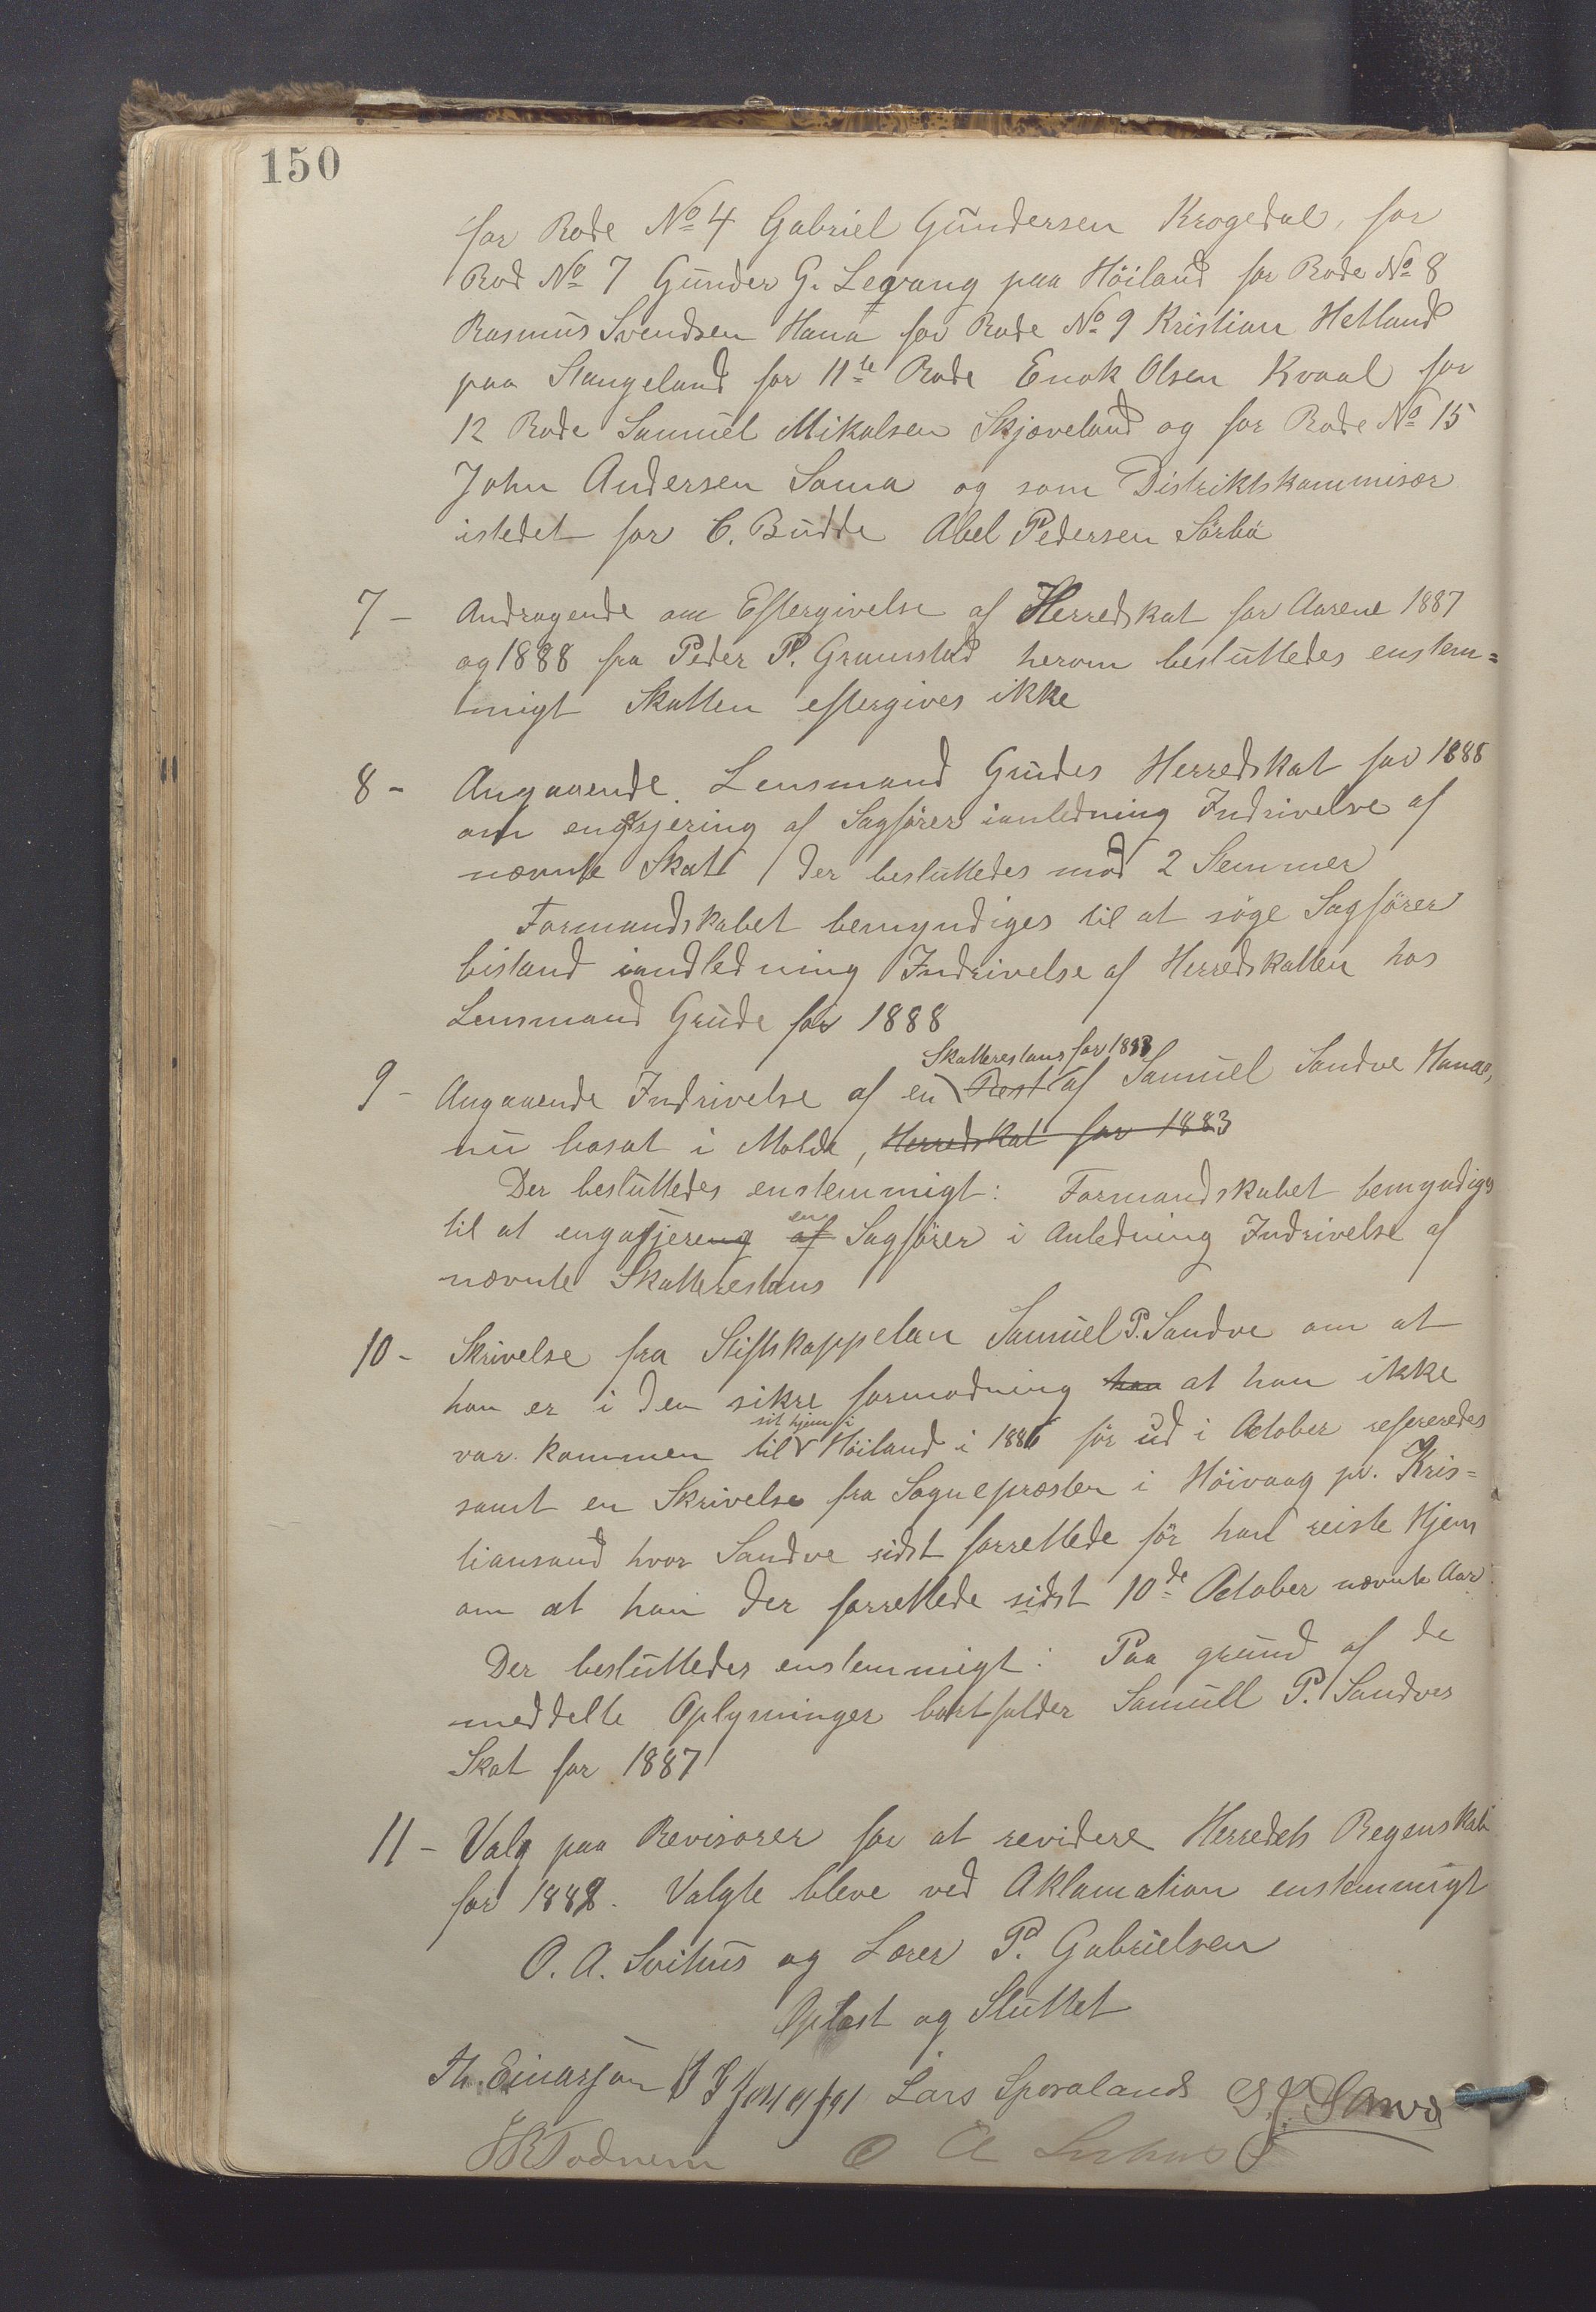 150
for Rode No 4 Gabriel Gundersen Krogedal, for
Rod No 7 Gunder G. Legvang paa Höiland for Rode No 8
Rasmus Svendsen Hana for Rode No 9 Kristian Hetland
paa Stangeland for 11te Rode Enok Olsen Kvaal for
12 Rode Samuel Mikalsen Skjæveland og for Rode No 15
John Andersen Soma og som Distriktskommisær
istedet for C. Budde Abel Pedersen Sörbö
7 - Andragende om Eftergivelse af Herredskat for Aarene 1887
og 1888 fra Peder P. Gramstad herom besluttedes enstem=
migt Skatten eftergives ikke
8 - Angaaende Lensmand Grudes Herredskat for 1888
om engasjering af Sagförer ianledning Indrivelse af
nævnte Skat / Der besluttedes mod 2 Semmer
Formandskabet bemyndiges til at söge Sagförer
bistand iandledning Indrivelse af Herredskatten hos
Lensmand Grude for 1888
Skatterestans for 1883
9 - Angaaende Indrivelse af en Rest af Samuel Sandve Hanae,
nu bosat i Molde, Herredskat for 1883
Der besluttedes enstemmigt: Formandskabet bemyndiges
en
til at engasjereng af Sagförer i Anledning Indrivelse af
nævnte Skatterestans
10 - Skrivelse fra Stiftskappelan Samuel P. Sandve om at
han er i den sikre formodning han at han ikke
sit hjem i
var kommen til Höiland i 1886 för ud i October refereredes
samt en Skrivelse fra Sognepræsten i Höivaag pr. Kris=
tiansand hvor Sandve sidst forrettede för han reiste Hjem
om at han der forrettede sidst 10de October nævnte Aar.
Der besluttedes enstemmigt: Paa grund af de
meddelte Oplysninger bortfalder Samuell P. Sandves
Skat for 1887
11 - Valg paa Revisorer for at revidere Herredets Regenskab
for 1888. Valgte bleve ved Aklamation enstemmigt
O. A. Svihus og Lærer P. Gabrielsen
Oplæst og Sluttet
Th. Einarsen Lars Sporaland
Todnem O A Svihus